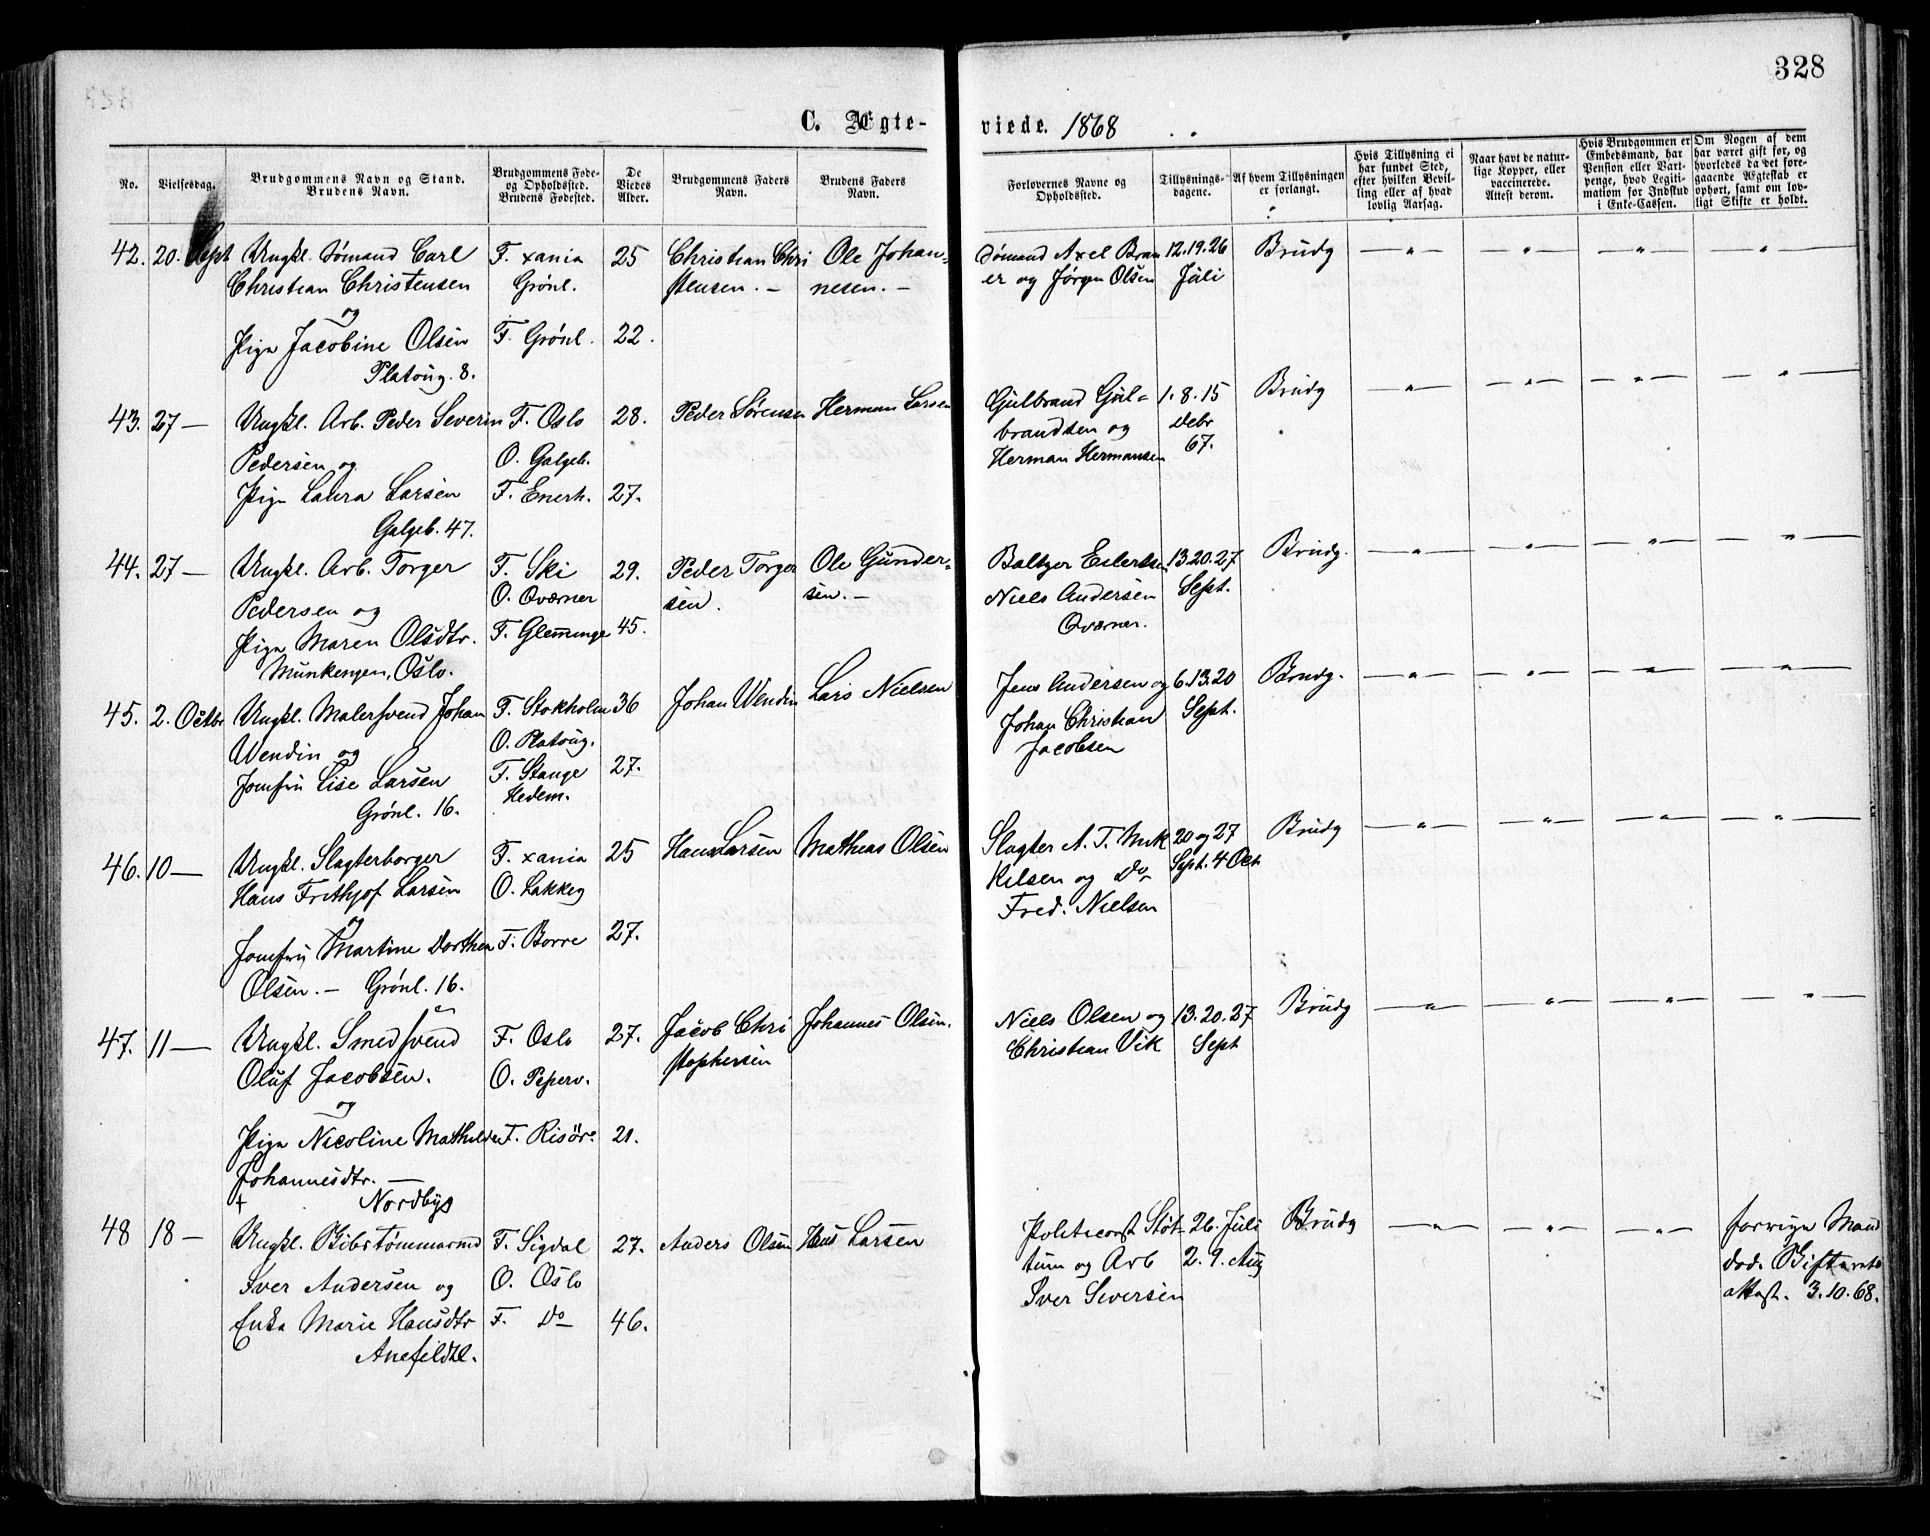 328
C. Ægte-
viede. 1868
No.
Vielsesdag.
Brudgommens Navn og Stand.
Brudens Navn.
Brudgommens Føde-
og Opholdssted.
Brudens Fødested.
De
Viedes
Alder.
Brudgommens Faders
Navn.
Brudens Faders
Navn.
Forlovernes Navne og
Opholdssted.
Tillysnings-
dagene.
Af hvem Tillysningen
er forlangt.
Hvis Tillysning ei
har fundet Sted,
efter hvilken Bevil-
ling eller af hvad
lovlig Aarsag.
Naar havt de natur-
lige Kopper, eller
vaccinerede.
Attest derom.
Hvis Brudgommen er
Embedsmand, har
Pension eller Vart-
penge, hvad Legiti-
mation for Indskud
i Enke-Cassen.
Om Nogen af dem
har været gift før, og
hvorledes da det fore-
gaaende Ægteskab er
ophørt, samt om lov-
ligt Skifte er holdt.
42. 20. Sept Ungkl. Sømand Carl F. xania 25 Christian Chri Ole Johan= Sømand Axel Bran 12.19.26 Brudg — " — — " — — " — — " —
Christian Christensen Grönl. stensen. — nesen. — er og Jørgen Olsen Juli
og
Pige Jacobine Olsen F. Grönl. 22.
Platoug. 8.
43. 27 — Ungkl. Arb. Peder Severin F. Oslo 28. Peder Sørensen Herman Larsen Gulbrand Gul= 1. 8. 15 Brudg — " — — " — — " — — " —
Pedersen og O. Galgeb. brandsen og Debr
Pige Laura Larsen F. Enerh. 27. Herman Hermansen 67.
Galgeb. 47.
44. 27 — Ungkl. Arb. Torger F. Ski 29. Peder Torger Ole Gunder= Baltzer Eilertsen 13.20.27 Brudg. — " — — " — — " — — " —
Pedersen og O. Qværner sen. sen. — Niels Andersen Sept.
Pige Maren Olsdtr. F. Glemminge 45. Qværner.
Munkengen, Oslo.
45. 2. Octbr Ungkl. Malersvend Johan F. Stokholm 36 Johan Wendin Lars Nielsen Jens Andersen og 6.13.20 Brudg. — " — — " — — " — — " —
Wendin og O. Platoug. Johan Christian Sept.
Jomfru Lise Larsen F. Stange 27. Jacobsen
Grönl. 16. Hedem.
46. 10 — Ungkl. Slagterborger F. xania 25 Hans Larsen Mathias Olsen Slagter A. T. Mik 20 og 27 Brudg — " — — " — — " — — " —
Hans Frithjof Larsen O. Lakkeg kelsen og Do Sept. 4 Oct
og Fred. Nielsen
Jomfru Martine Dorthea F. Borre 27.
Olsen. — Grönl. 16.
47. 11 — Ungkl. Smedsvend F. Oslo 27. Jacob Chri Johannes Olsen. Niels Olsen og 13. 20. 27 Brudg — " — — " — — " — — " —
Oluf Jacobsen. O. Peperv. stophersen Christian Vik Sept
og
Pige Nicoline Mathilde F. Risör. 21.
Johannesdtr. —
+ Nordbyg
48 18 — Ungkl. Bibstømmermd F. Sigdal 27. Anders Olsen Hans Larsen Politiconst Slöt- 26. Juli Brudg — " — — " — — " — forrige Mand
Iver Andersen og O. Oslo tum og Arb 2. 9. Aug død.
Enke Marie Hansdtr F. Do 46. Iver Iversen attest. 3.10.68.
Anefeldtl.